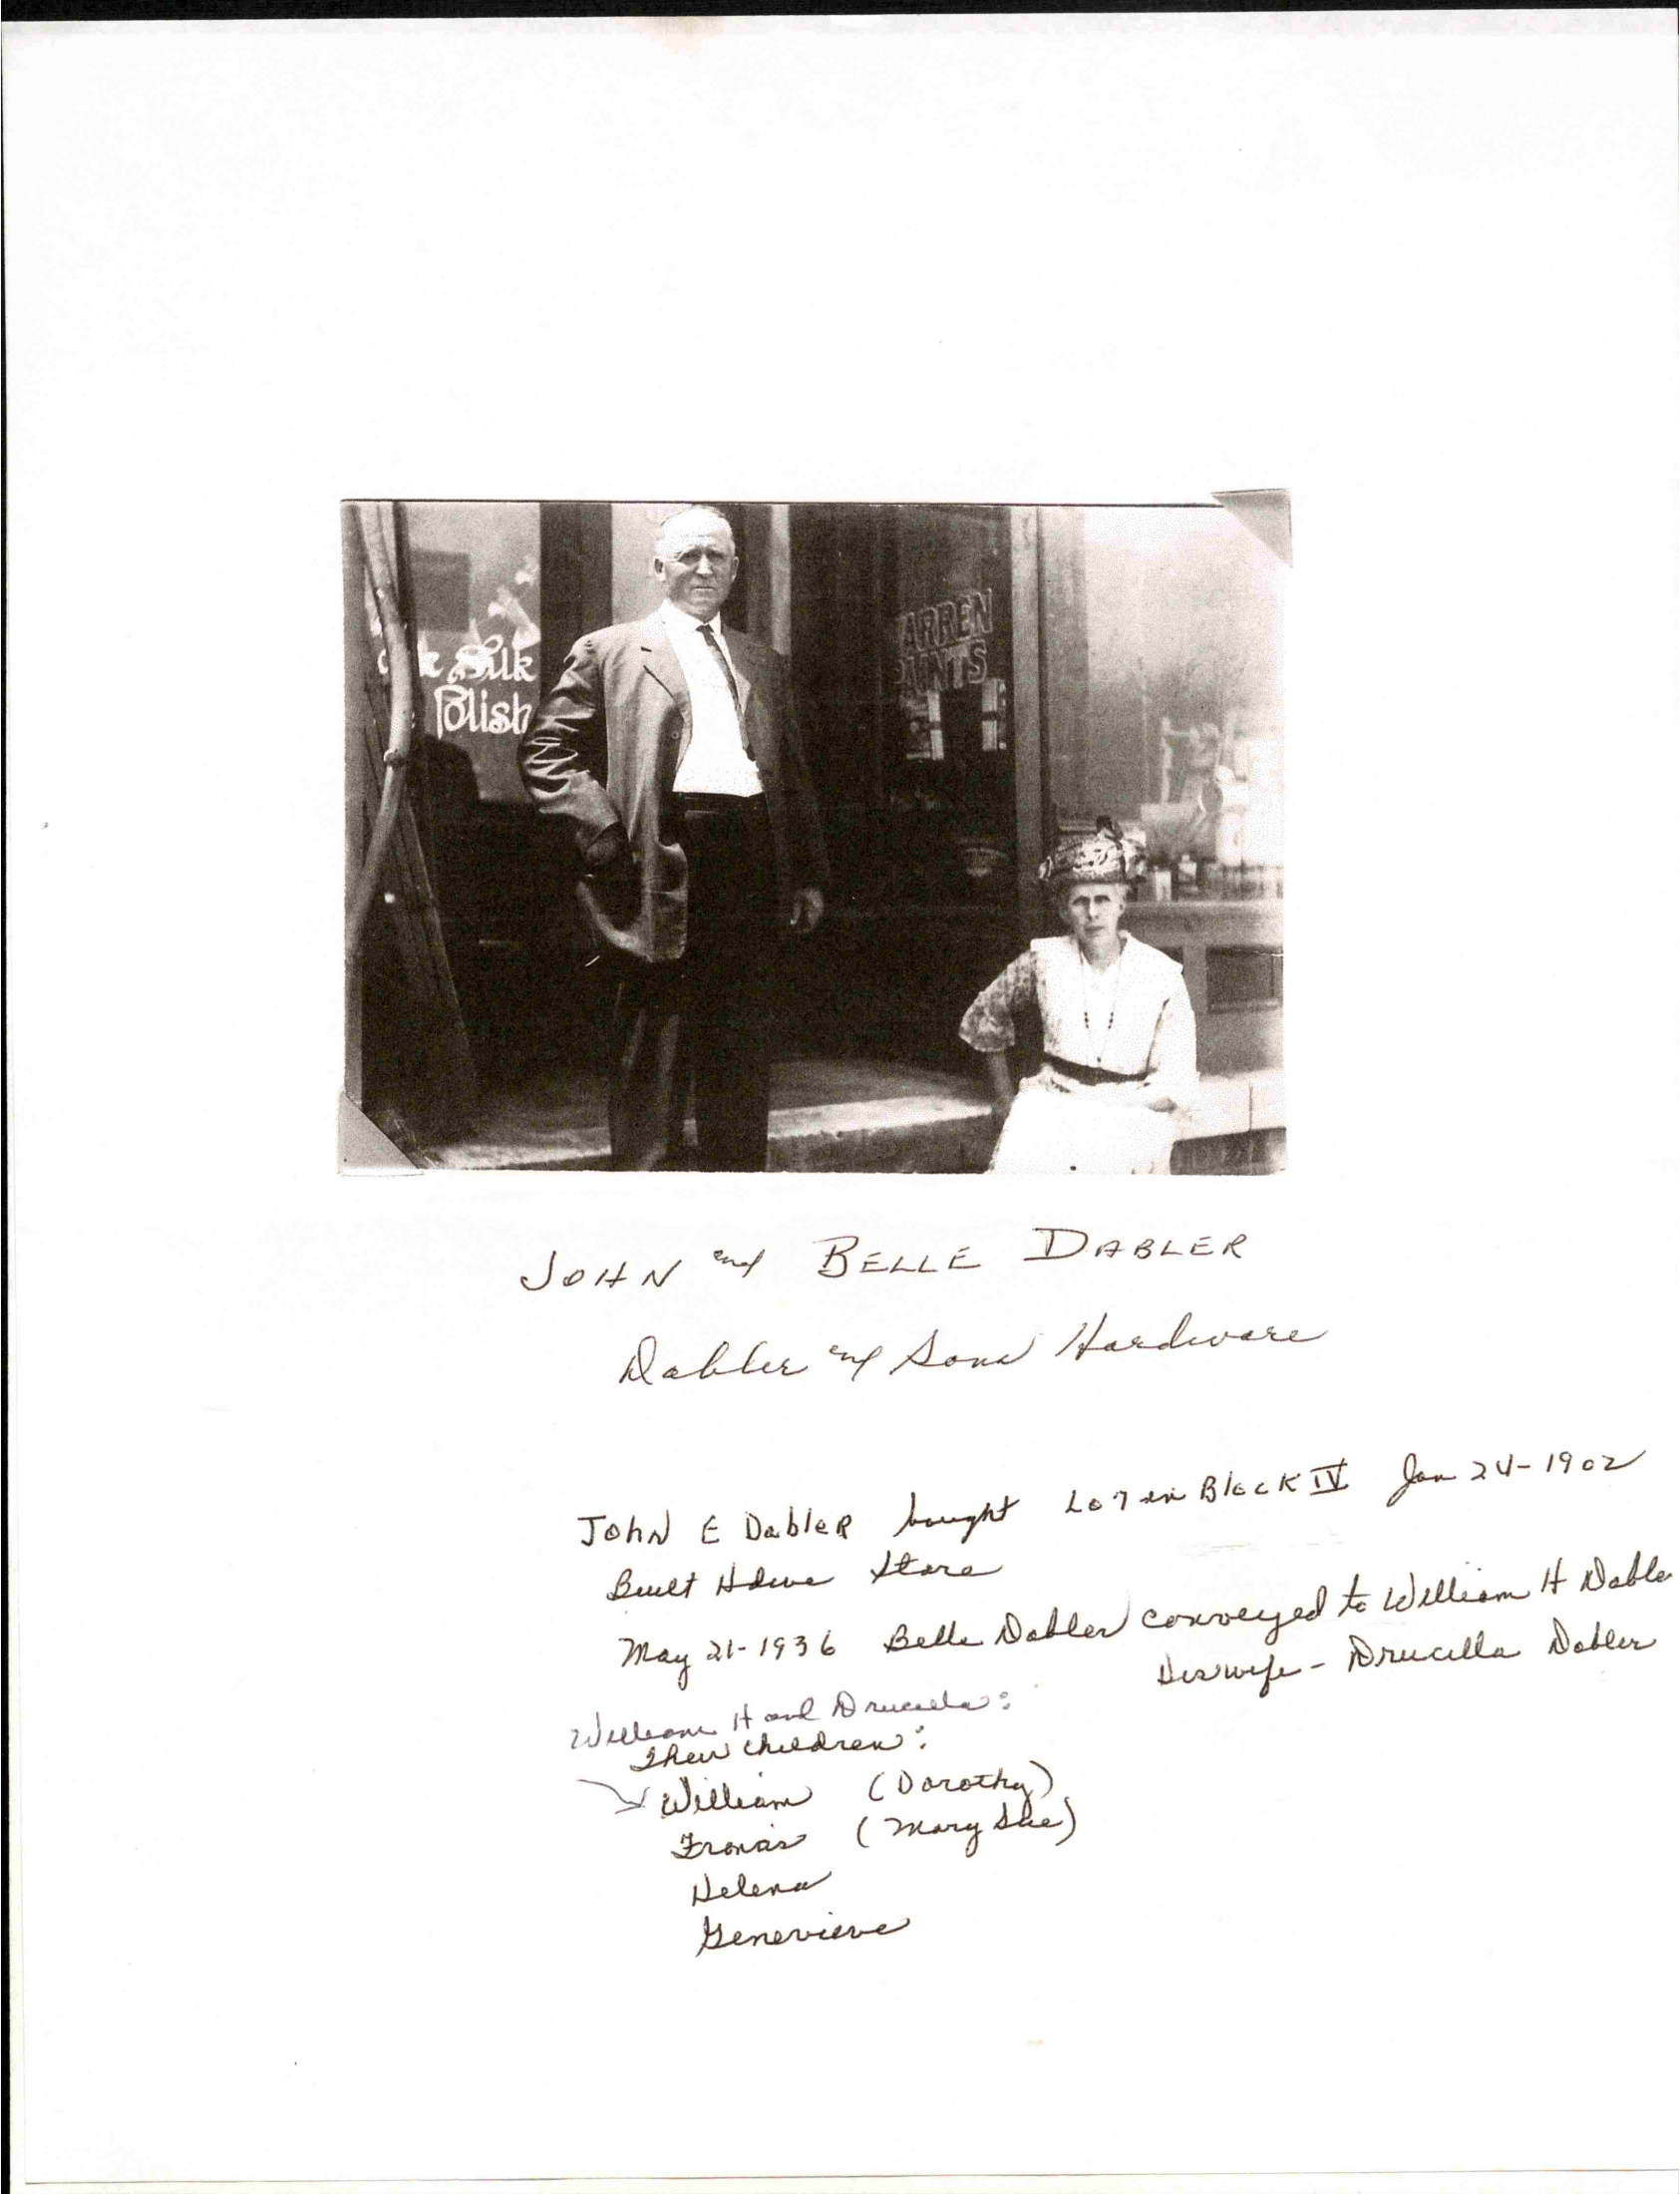 Silk
Polish
ARREN
AINTS
JOHN and BELLE DABLER
Dabler and Sons Hardware
JOHN E DableR bought Lo7 in BlocK IV Jan 24-1902
Built Hdwe Store
May 21-1936 Belle Dabler conveyed to William H Dable
His wife - Drucilla Dabler
William H and Drucilla:
Their children:
William (Dorothy)
Francis (Mary Sue)
Helena
Genevieve